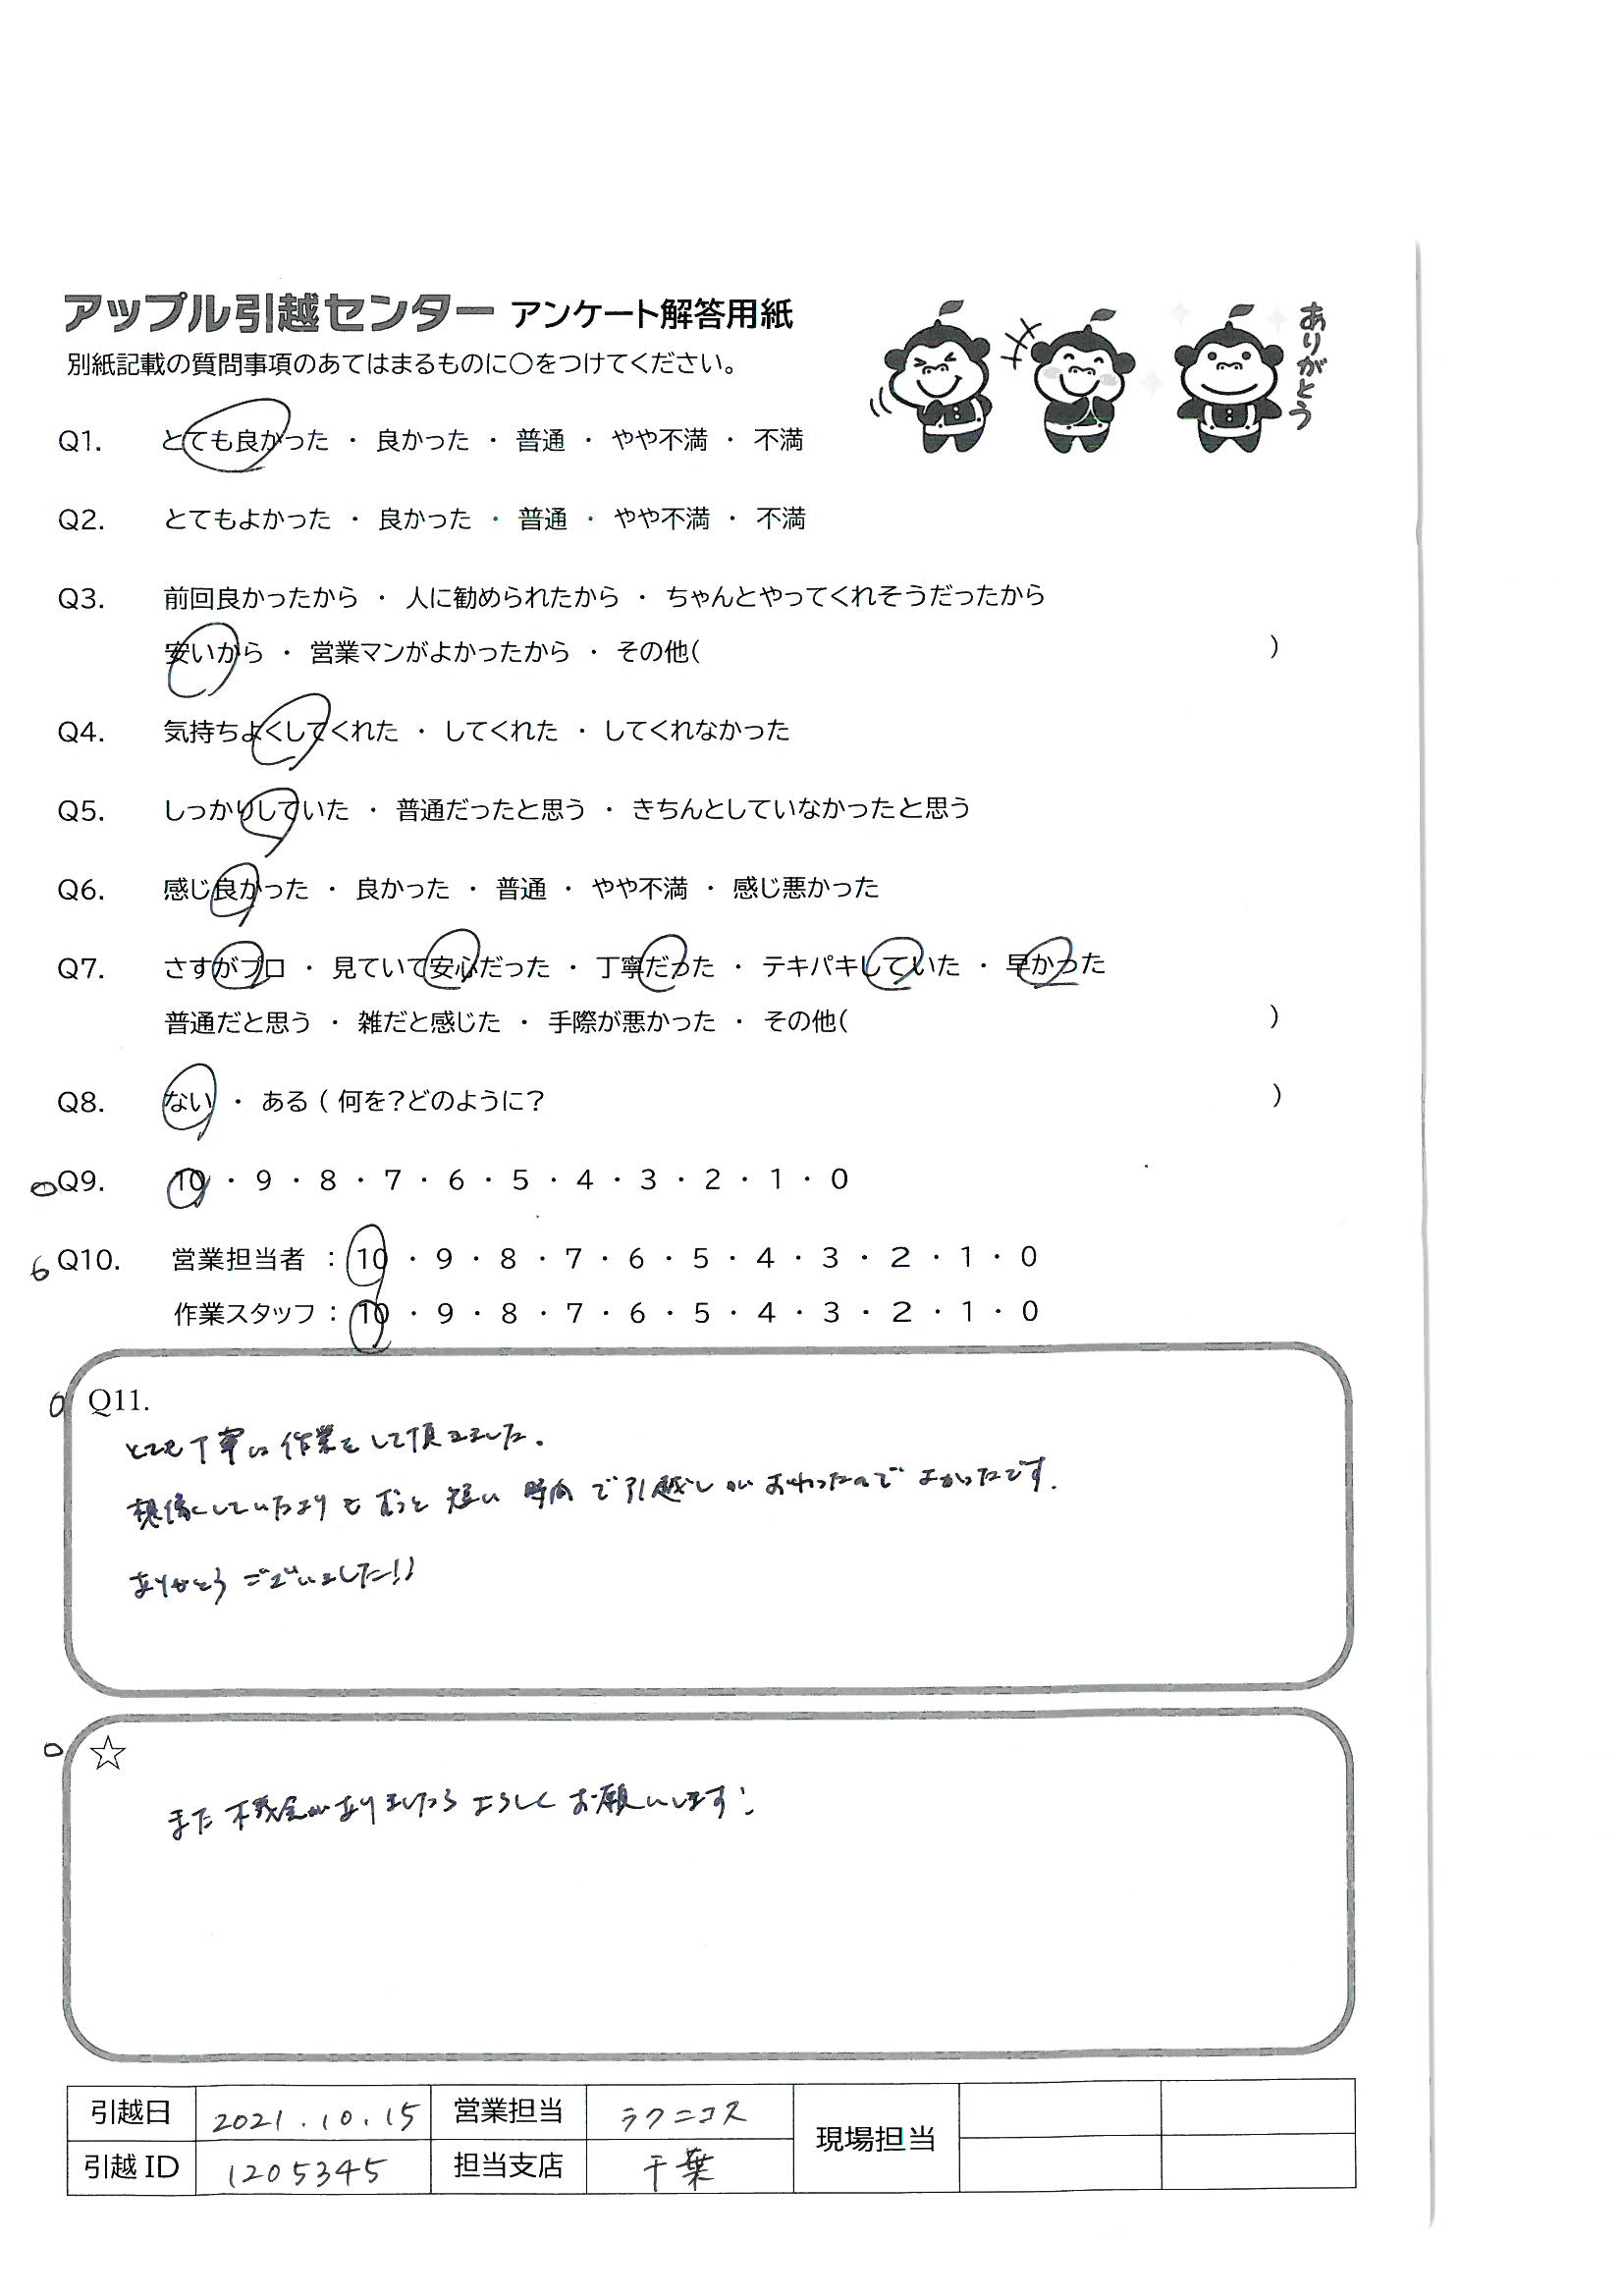 アップル引越センター アンケート解答用紙
別紙記載の質問事項のあてはまるものに○をつけてください。
ありがとう
Q1. とても良かった ・ 良かった ・ 普通 ・ やや不満 ・ 不満
Q2. とてもよかった ・ 良かった ・ 普通 ・ やや不満 ・ 不満
Q3. 前回良かったから ・ 人に勧められたから ・ ちゃんとやってくれそうだったから
安いから ・ 営業マンがよかったから ・ その他( )
Q4. 気持ちよくしてくれた ・ してくれた ・ してくれなかった
Q5. しっかりしていた ・ 普通だったと思う ・ きちんとしていなかったと思う
Q6. 感じ良かった ・ 良かった ・ 普通 ・ やや不満 ・ 感じ悪かった
Q7. さすがプロ ・ 見ていて安心だった ・ 丁寧だった ・ テキパキしていた ・ 早かった
普通だと思う ・ 雑だと感じた ・ 手際が悪かった ・ その他( )
Q8. ない ・ ある ( 何を?どのように? )
Q9. 10 ・ 9 ・ 8 ・ 7 ・ 6 ・ 5 ・ 4 ・ 3 ・ 2 ・ 1 ・ 0
Q10. 営業担当者 : 10 ・ 9 ・ 8 ・ 7 ・ 6 ・ 5 ・ 4 ・ 3 ・ 2 ・ 1 ・ 0
作業スタッフ : 10 ・ 9 ・ 8 ・ 7 ・ 6 ・ 5 ・ 4 ・ 3 ・ 2 ・ 1 ・ 0
Q11.
とても丁寧に作業をして頂きました。
想像していたよりもずっと短い時間で引越しがおわったのでよかったです.
ありがとうございました!!
☆
また機会がありましたらよろしくお願いします!
引越日 2021.10.15 営業担当 ラクニコス 現場担当
引越ID 1205345 担当支店 千葉